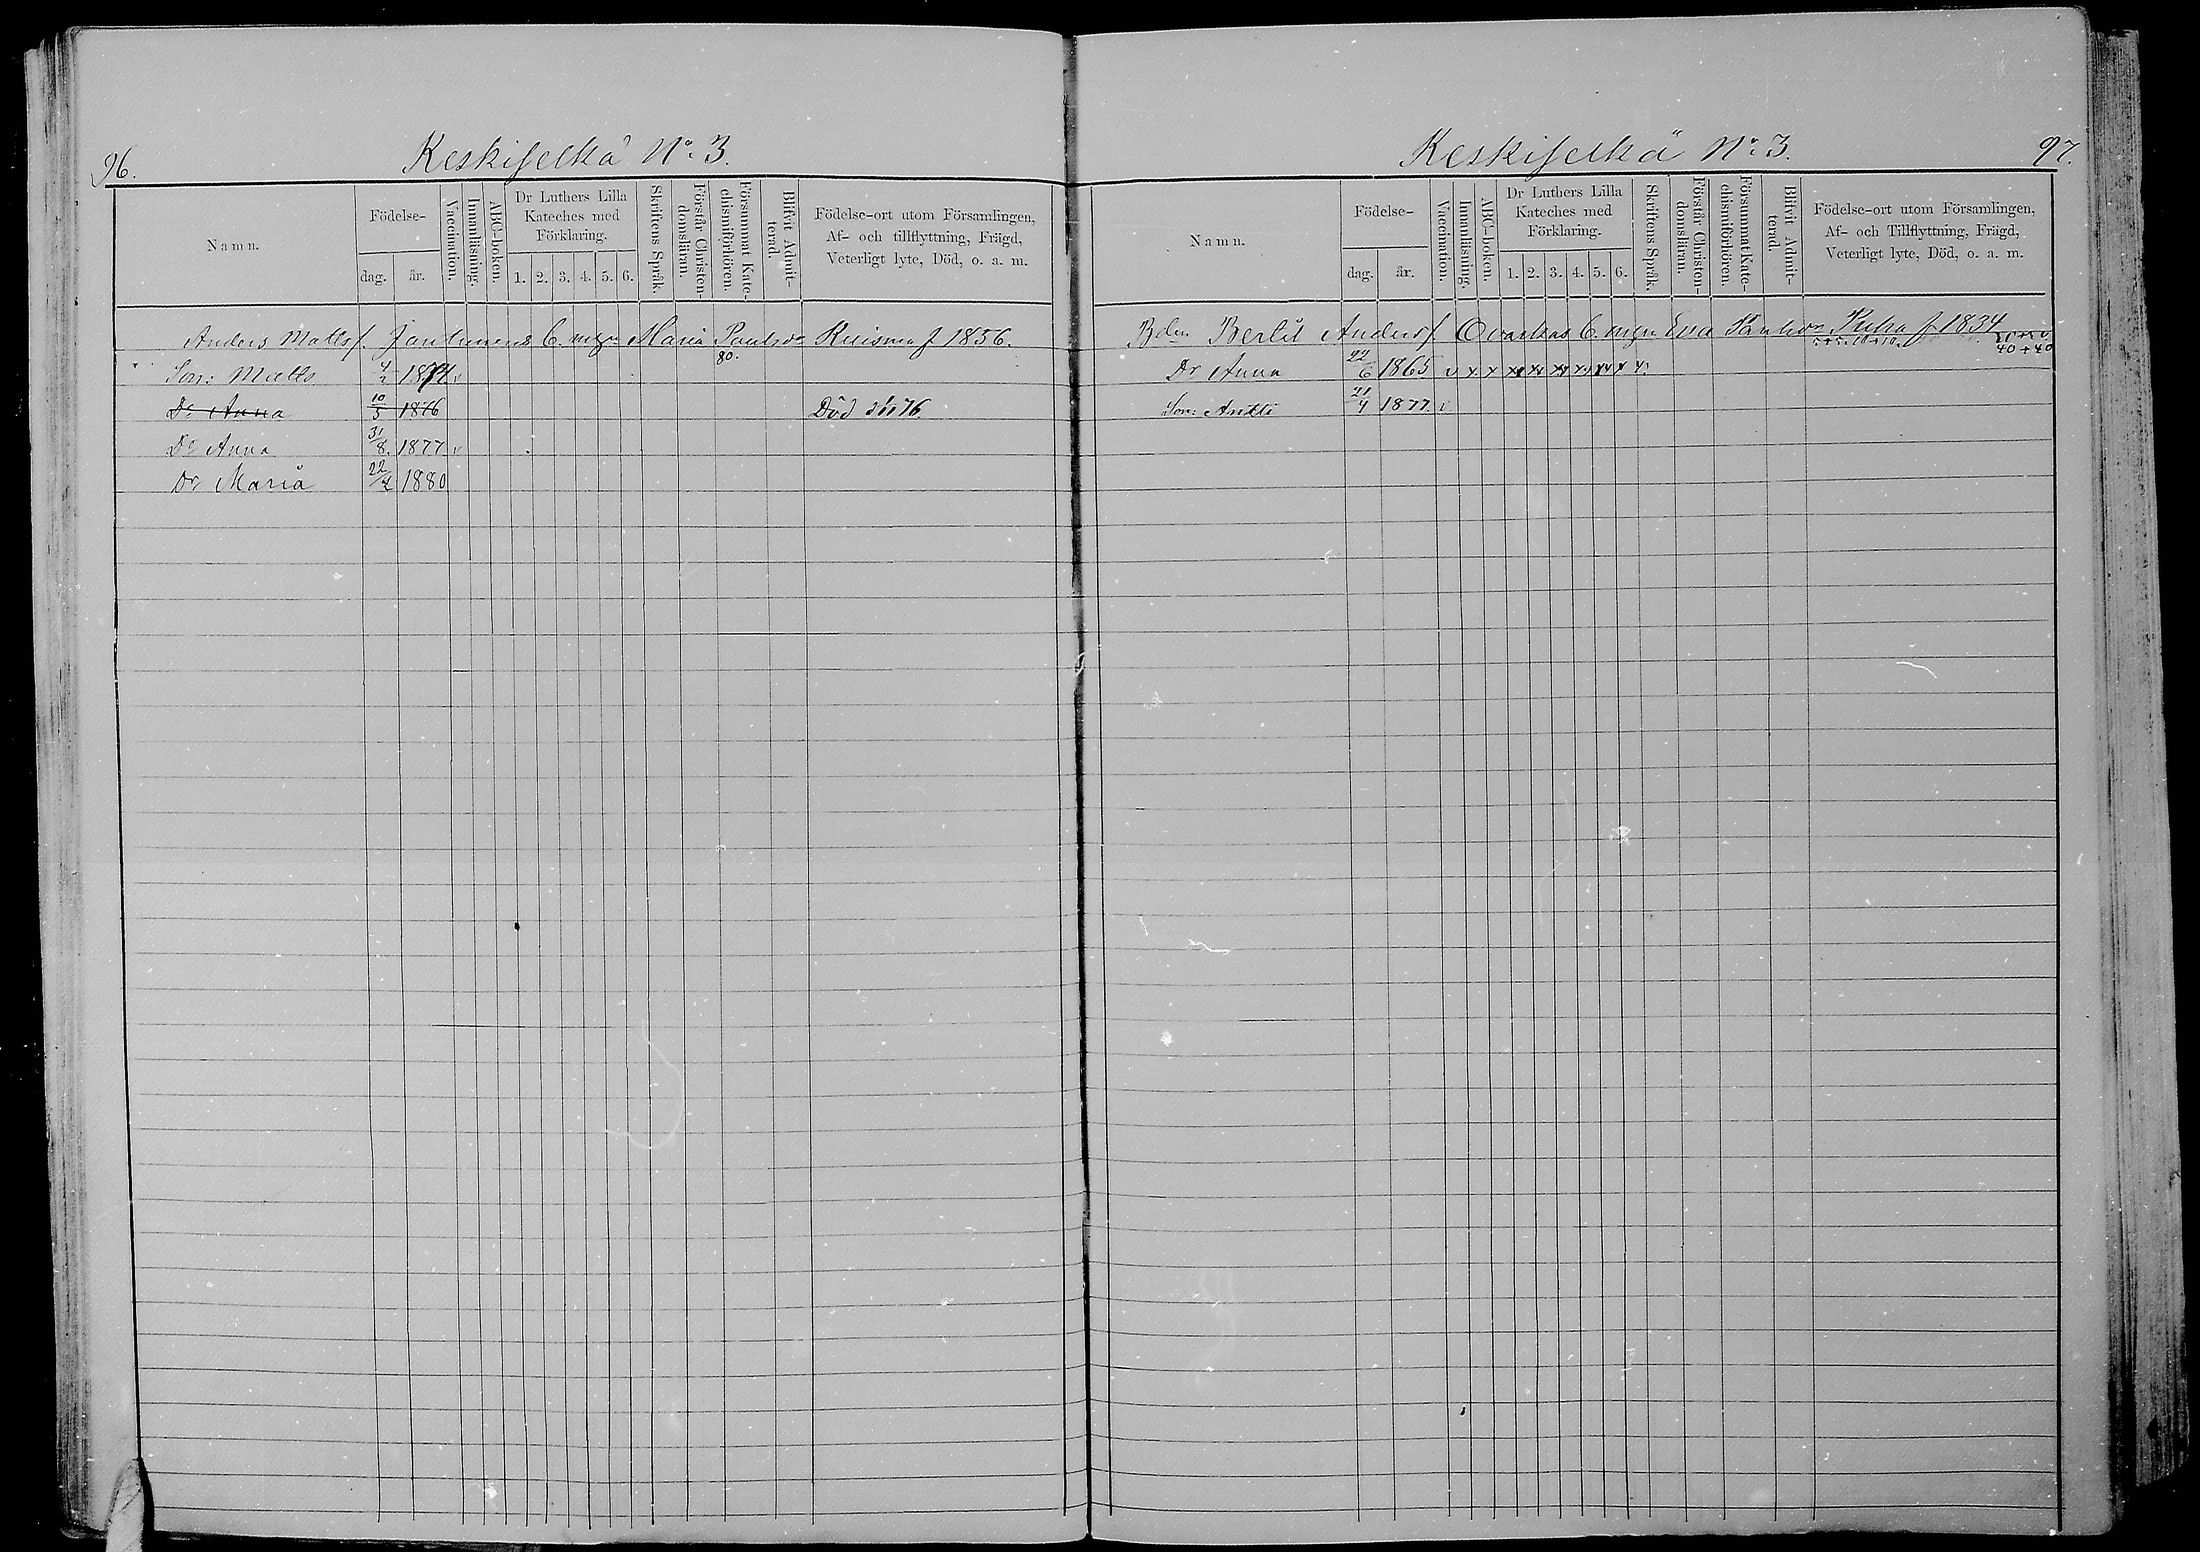 96.
Keskiselkä No: 3.
Namn.
Födelse-
dag. år.
Vaccination.
Innanläsning.
ABC-boken.
Dr Luthers Lilla
Kateches med
Förklaring.
1. 2. 3. 4. 5. 6.
Skriftens Språk.
Förstår Christen-
domsläran.
Försummat Kate-
chismiförhören.
Blifvit Admit-
terad.
Födelse-ort utom Församlingen,
Af- och tillflyttning, Frägd,
Veterligt lyte, Död, o. a. m.
Anders Matts s. Jantunens Maria Paulsdr Ruisma f 1856.
80.
Son: Matts 1874 v
Dr Anna 10/5 1876 Död 76.
Dr Anna 31/8. 1877 v
Dr Maria 1880
Keskiselkä No: 3.
97.
Namn.
Födelse-
dag. år.
Vaccination.
Innanläsning.
ABC-boken.
Dr Luthers Lilla
Kateches med
Förklaring.
1. 2. 3. 4. 5. 6.
Skriftens Språk.
Förstår Christen-
domsläran.
Försummat Kate-
chismiförhören.
Blifvit Admit-
terad.
Födelse-ort utom Församlingen,
Af- och Tillflyttning, Frägd,
Veterligt lyte, Död, o. a. m.
Bertil Anders s. Eva f 1834
40+40
Dr Anna 22/6 1865 v x x
Son: Antti 21/4 1877. v